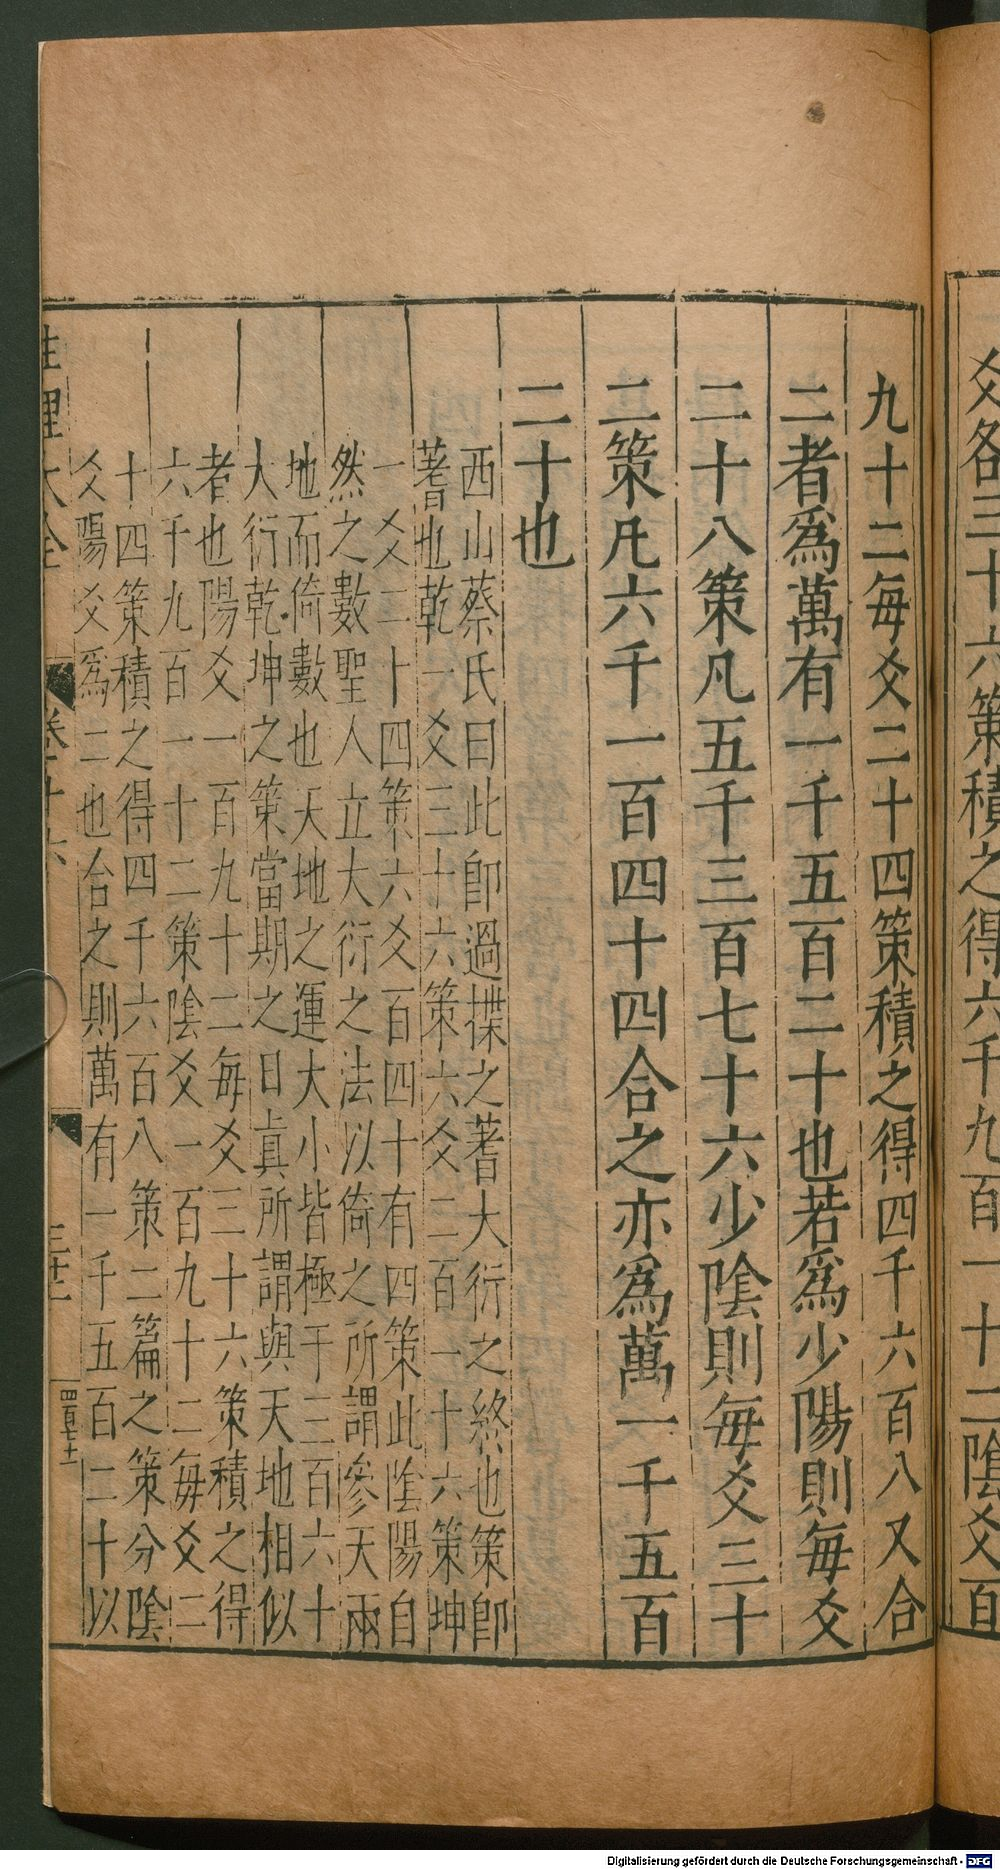 爻各三十六策積之得六千九百一十二陰爻百
九十二每爻二十四策積之得四千六百八又合
二者爲萬有一千五百二十也若爲少陽則每爻
二十八策凡五千三百七十六少陰則每爻三十
二策凡六千一百四十四合之亦爲萬一千五百
二十也
西山蔡氏曰此卽過揲之蓍大衍之終也策卽
蓍也乾一爻三十六策六爻二百一十六策坤
一爻二十四策六爻百四十有四策此陰陽自
然之數聖人立大衍之法以倚之所謂參天兩
地而倚數也天地之運大小皆極于三百六十
大衍乾坤之策當期之日眞所謂與天地相似
者也陽爻一百九十二每爻三十六策積之得
六千九百一十二策陰爻一百九十二每爻二
十四策積之得四千六百八策二篇之策分陰
爻陽爻爲二也合之則萬有一千五百二十以
性理大全 卷十六 三十二 四百七十
Digitalisierung gefördert durch die Deutsche Forschungsgemeinschaft - DFG